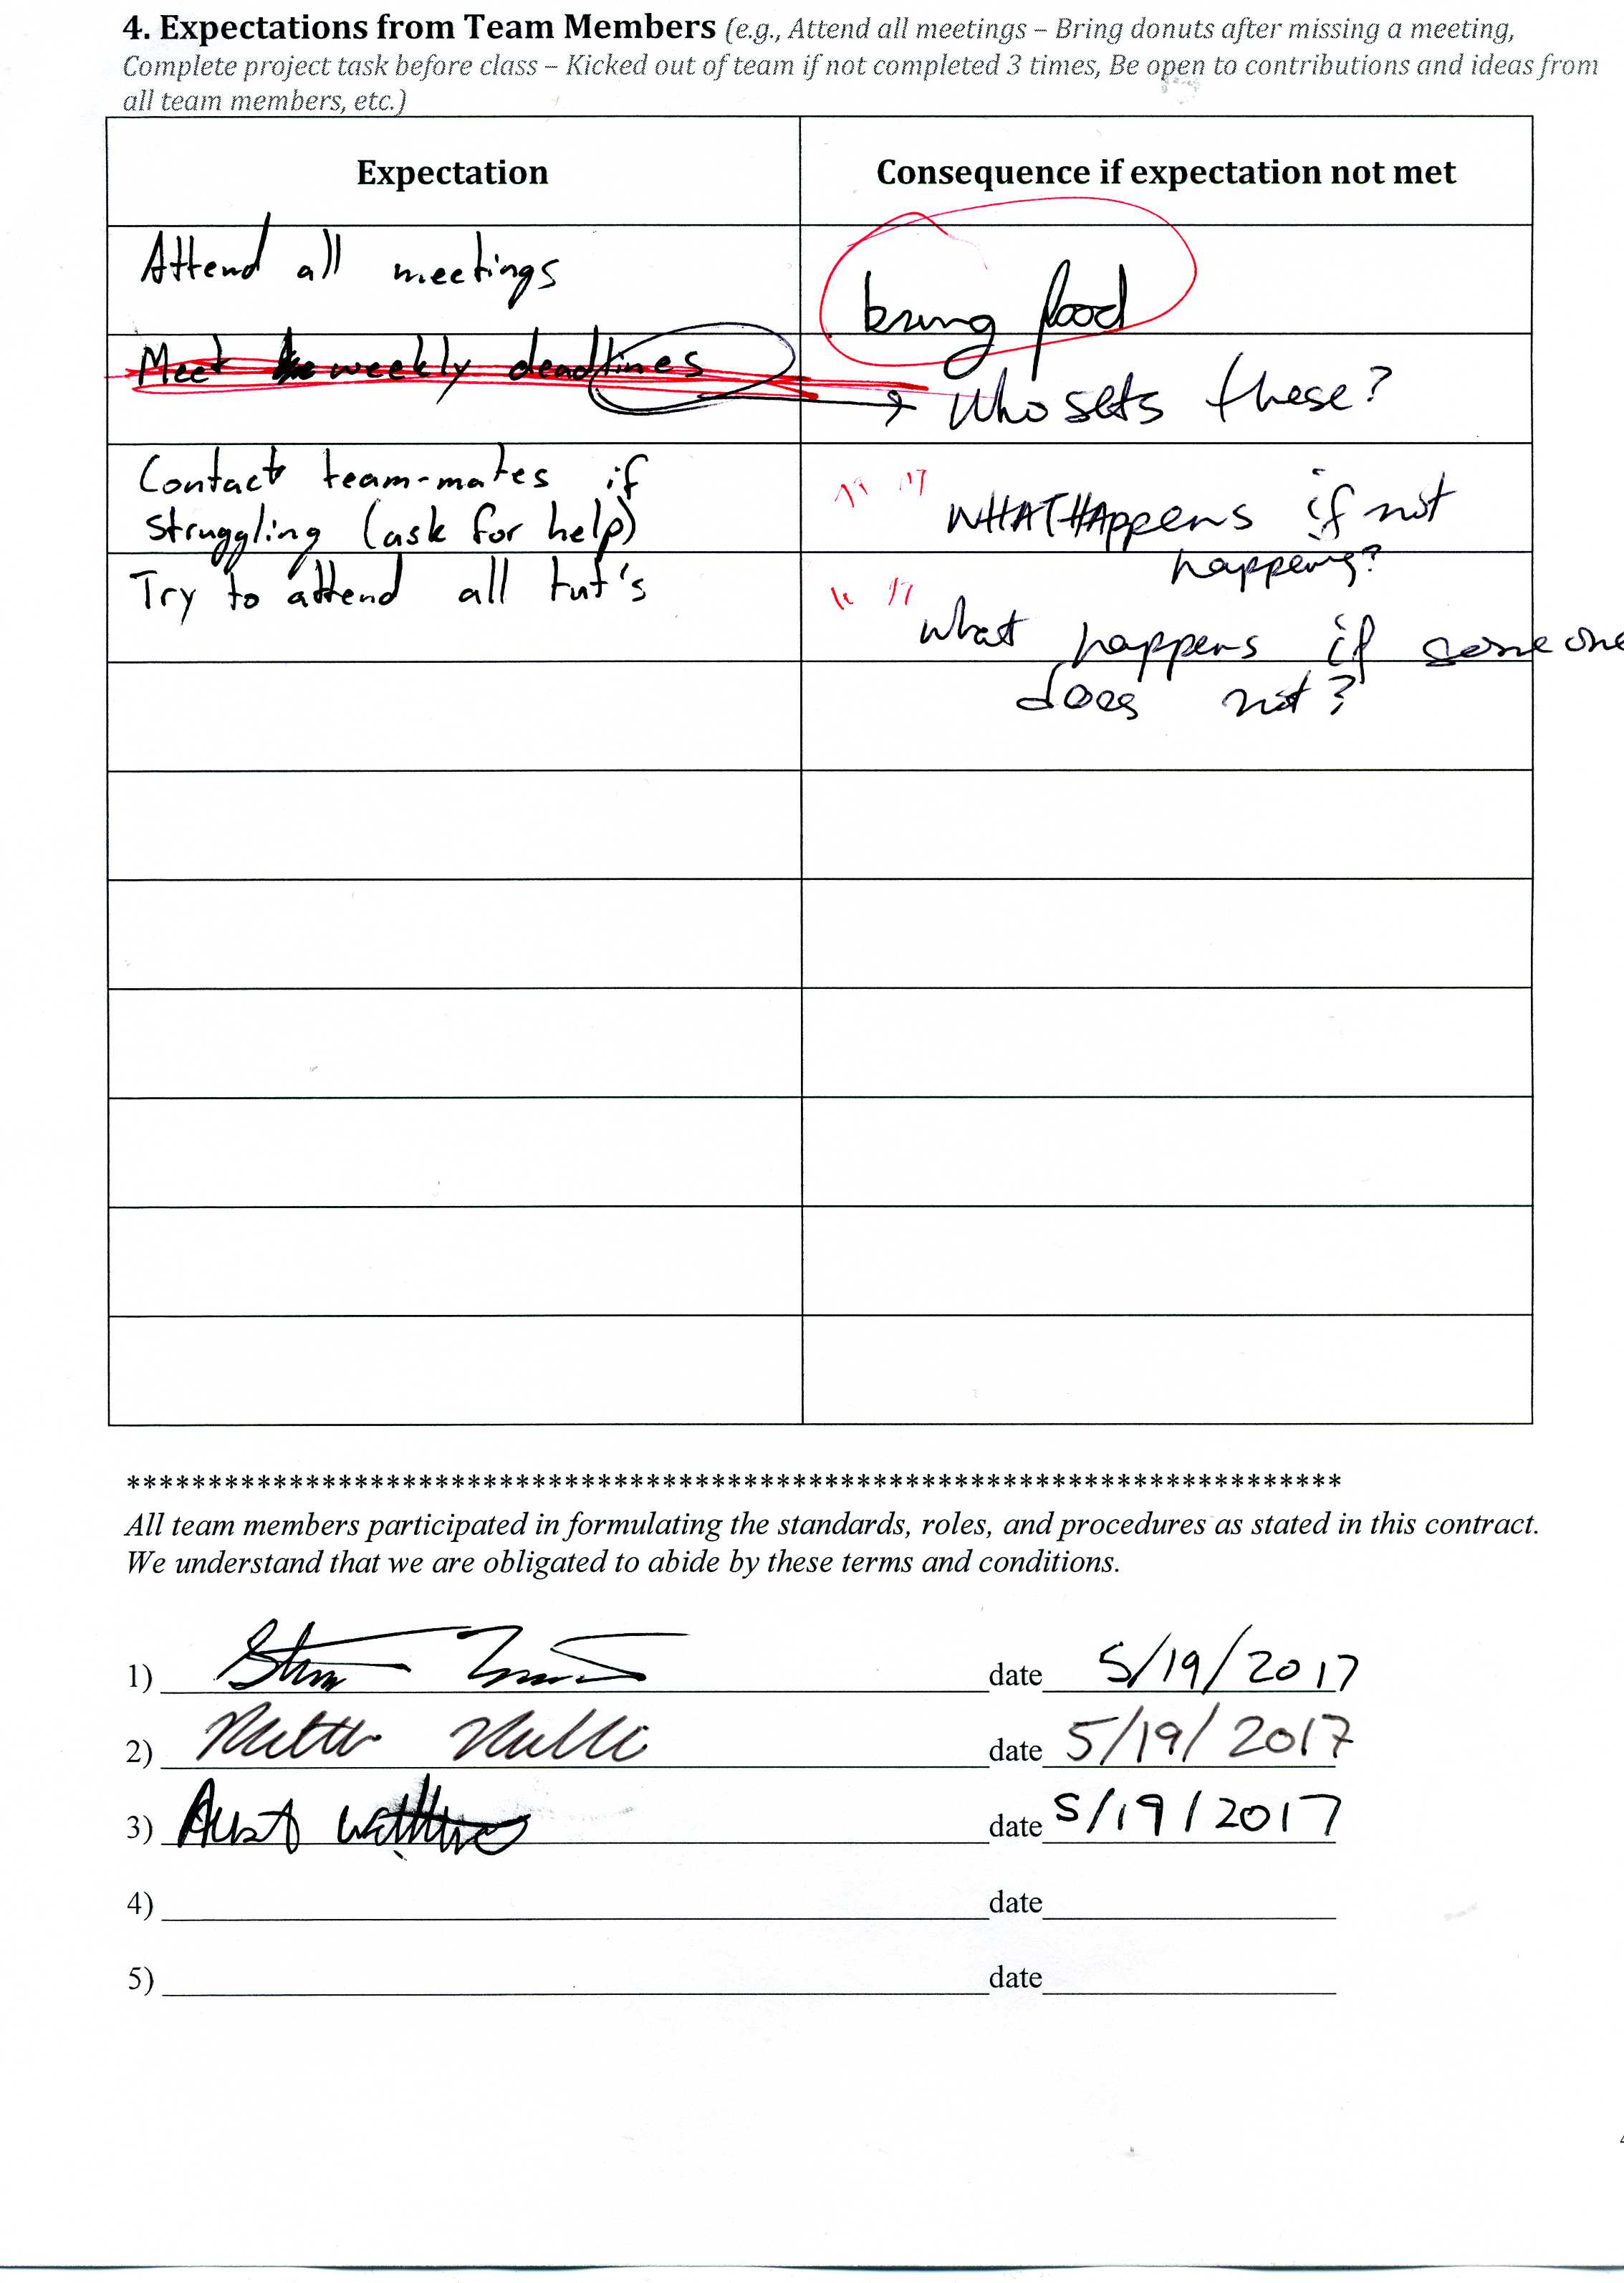 4. Expectations from Team Members (e.g., Attend all meetings – Bring donuts after missing a meeting,
Complete project task before class – Kicked out of team if not completed 3 times, Be open to contributions and ideas from
all team members, etc.)
Expectation
Consequence if expectation not met
Attend all meetings
bring food
Meet weekly deadlines
Who sets these?
Contact team-mates if
struggling (ask for help)
" " WHAT HAppens if not
happening?
Try to attend all tut's
" " what happens if someone
does not?
******************************************************************************
All team members participated in formulating the standards, roles, and procedures as stated in this contract.
We understand that we are obligated to abide by these terms and conditions.
1) date 5/19/2017
2) date 5/19/2017
3) date 5/19/2017
4) date
5) date